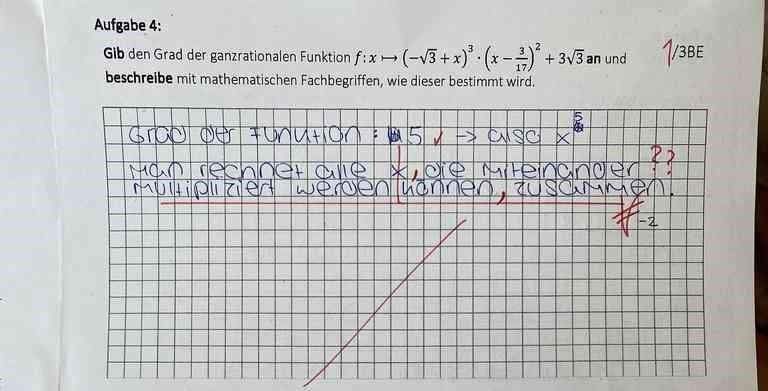 Aufgabe 4:
Gib den Grad der ganzrationalen Funktion f: x ↦ (−√3 + x)³ · (x − 3/17)² + 3√3 an und
beschreibe mit mathematischen Fachbegriffen, wie dieser bestimmt wird.
1/3BE
Grad der Funktion: 5 ✓ -> also x⁵
Man rechnet alle x, die miteinander ??
multipliziert werden können, zusammen.
-2